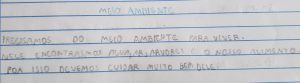 MEIO AMBIENTE
PRECISAMOS DO MEIO AMBIENTE PARA VIVER.
NELE ENCONTRAMOS AGUA, AR, ARVORES E O NOSSO ALIMENTO
POR ISSO DEVEMOS CUIDAR MUITO BEM DELE.